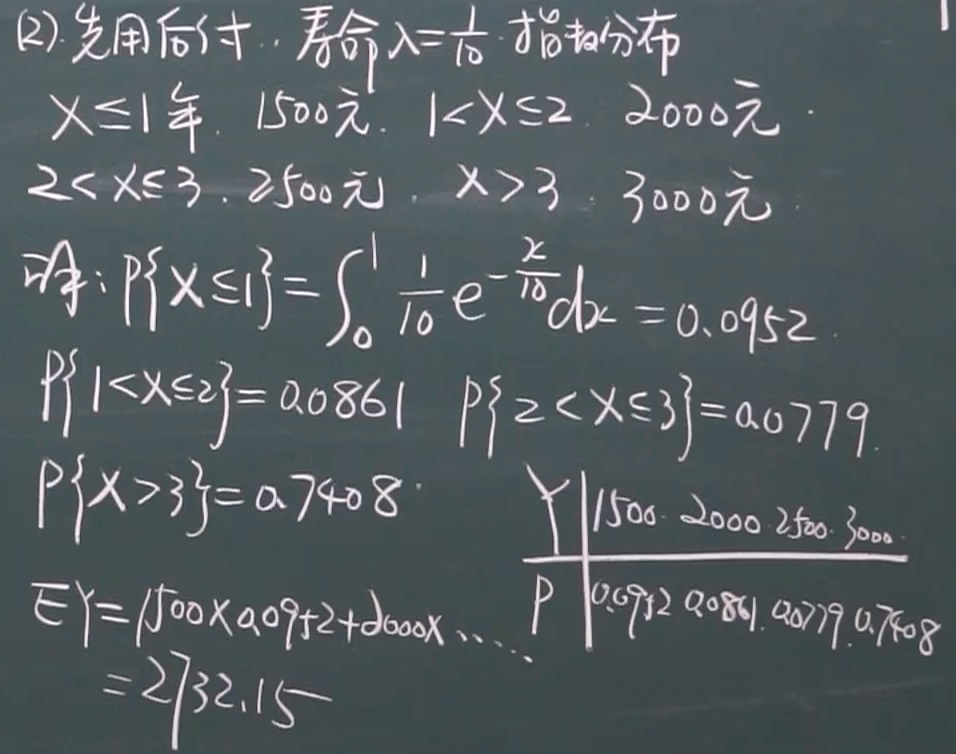 (2).先用后付.. 寿命λ=1/10 指数分布
X≤1年. 1500元. 1<X≤2. 2000元.
2<X≤3. 2500元. X>3. 3000元.
解: P{X≤1}=∫₀¹ 1/10 e^(-x/10) dx =0.0952.
P{1<X≤2}=0.0861 P{2<X≤3}=0.0779.
P{X>3}=0.7408.
Y | 1500. 2000. 2500. 3000.
P | 0.0952 0.0861. 0.0779. 0.7408
EY=1500×0.0952+2000×......
=2732.15